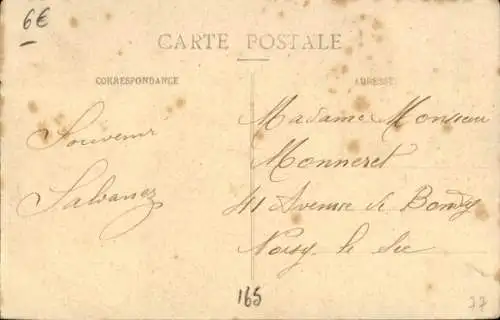 6€
CARTE POSTALE
CORRESPONDANCE
ADRESSE
Souvenir
Madame Monsieur
Monneret
41 Avenue de Bondy
Noisy le Sec
165
77